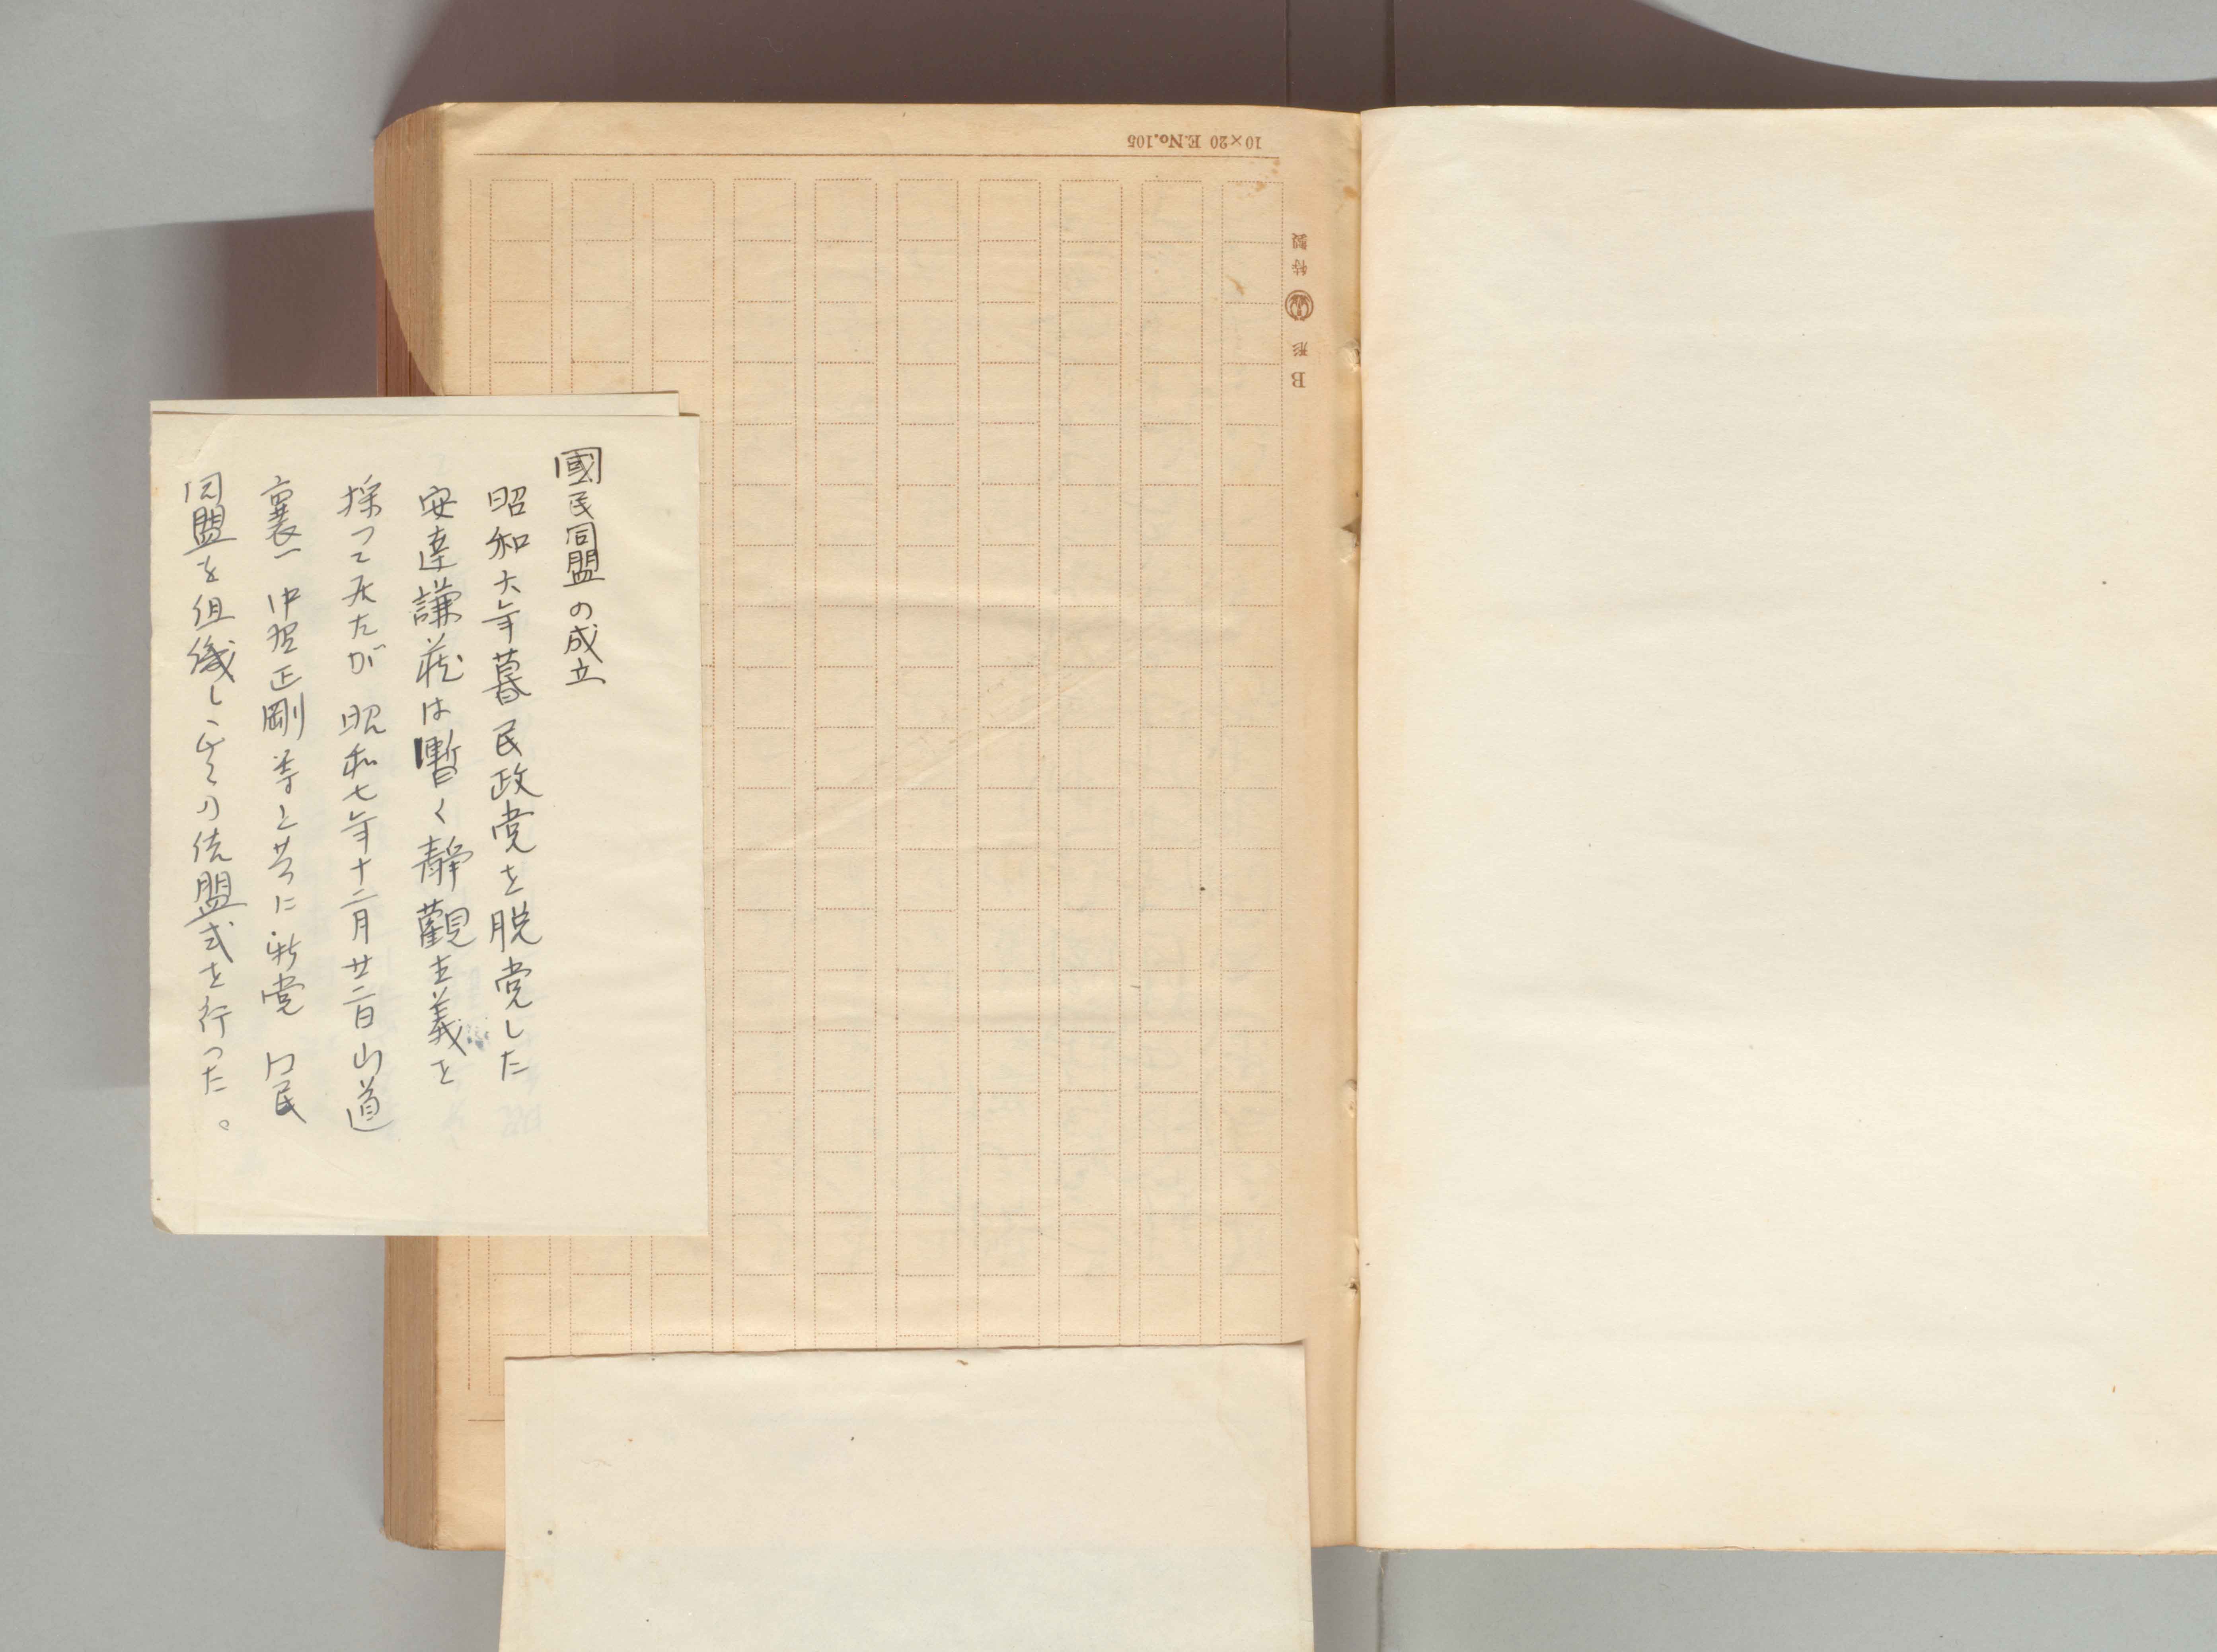 國民同盟の成立
昭和六年暮民政党を脱党した
安達謙蔵は暫く静觀主義を
採つて天たが 昭和七年十二月廿二日山道
襄一 中野正剛等と共に新党 国民
同盟を組織し の结盟式を行った。
10×20 E.No.105
特製
B形